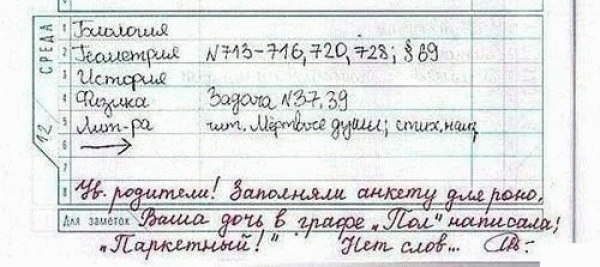 СРЕДА
12
1 Биология
2 Геометрия N713-716, 720, 728; § 69
3 История
4 Физика Задача N37.39
5 Лит-ра чит. Мёртвые души; стих. наиз
6 →
7
8 Ув. родители! Заполняли анкету для роно.
Для заметок Ваша дочь в графе „Пол" написала:
„Паркетный!" Нет слов...